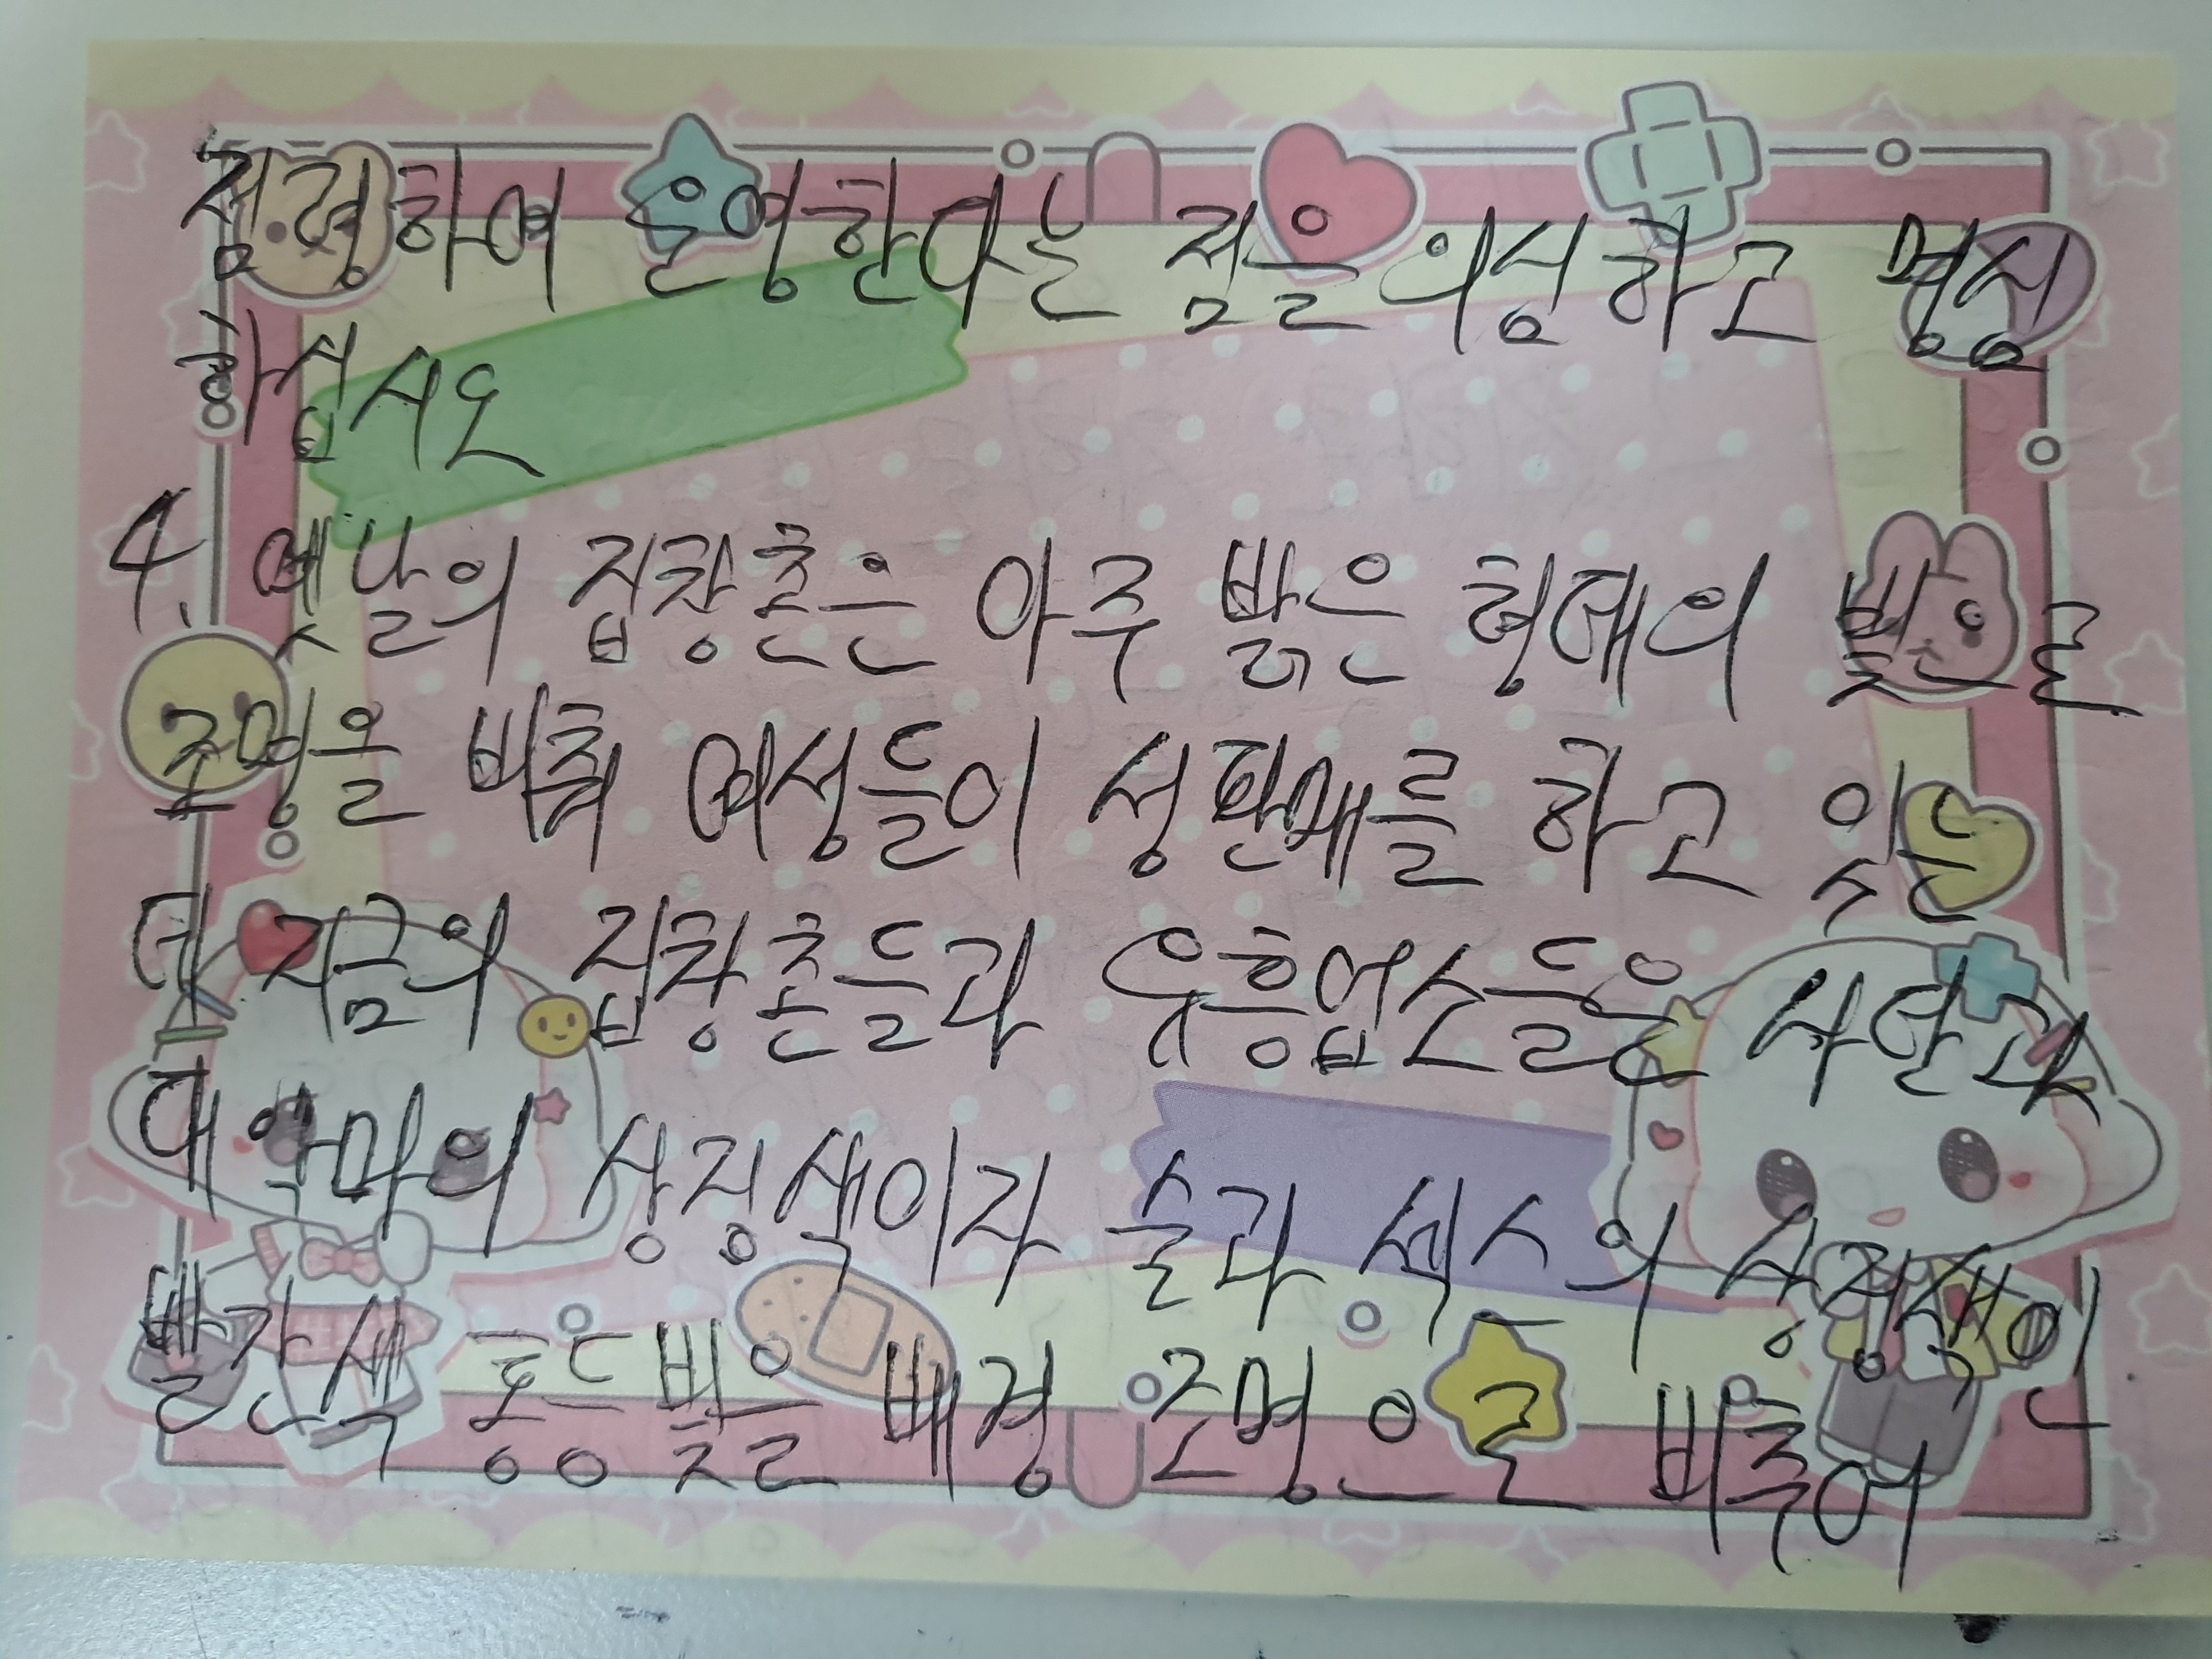 점령하여 운영한다는 점을 의심하고 명심
하십시오
4. 옛날의 집창촌은 아주 밝은 형태의 빛으로
조명을 비춰 여성들이 성판매를 하고 있는
데 지금의 집창촌들과 유흥업소들은 사탄과
대악마의 상징색이자 술과 섹스의 상징색인
빨간색 홍등빛을 배경 조명으로 비추어